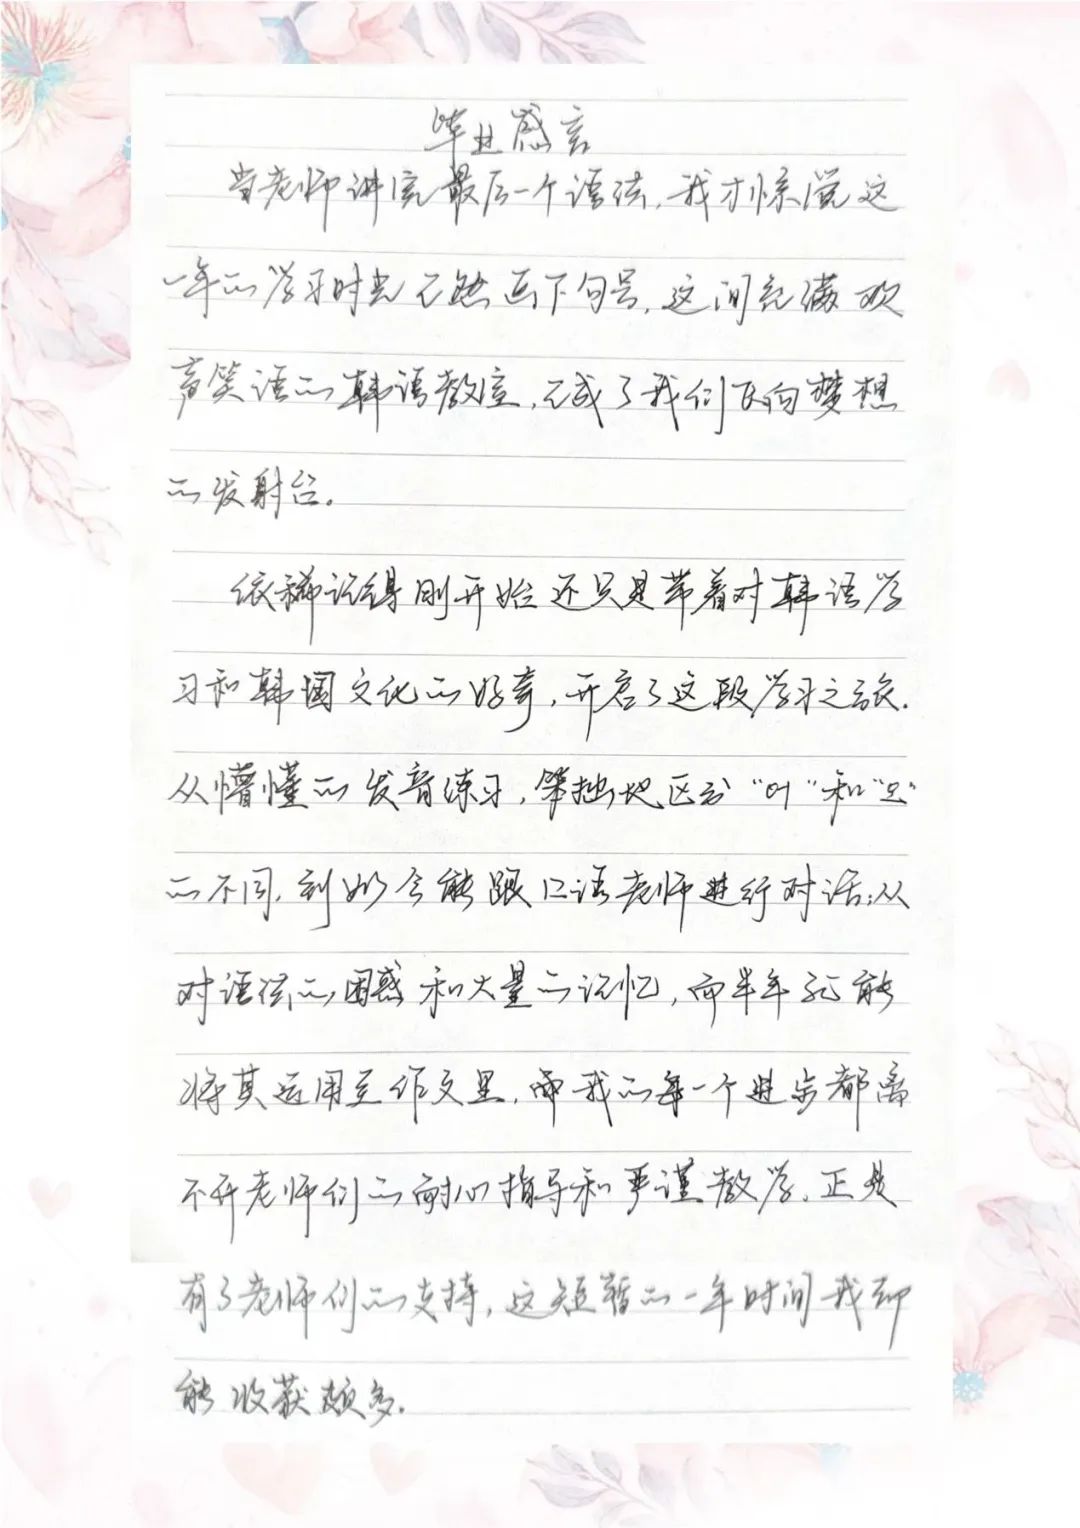 毕业感言
当老师讲完最后一个语法，我才惊觉这
一年的学习时光已然画下句号，这间充满欢
声笑语的韩语教室，已成了我们飞向梦想
的发射台。
依稀记得刚开始还只是带着对韩语学
习和韩国文化的好奇，开启了这段学习之旅.
从懵懂的发音练习，笨拙地区分“어”和“오”
的不同，到如今能跟口语老师进行对话；从
对语法的困惑和大量的记忆，而半年后能
将其运用至作文里，而我的每一个进步都离
不开老师们的耐心指导和严谨教学，正是
有了老师们的支持，这短暂的一年时间我却
能收获颇多.